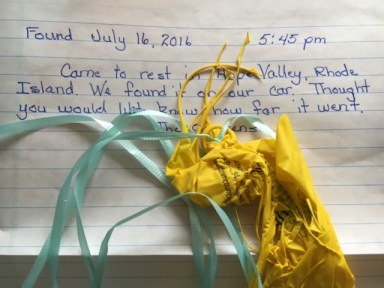 Found July 16, 2016 5:45 pm
Came to rest in Hope Valley, Rhode
Island. We found it on our car. Thought
you would like know how far it went.
The